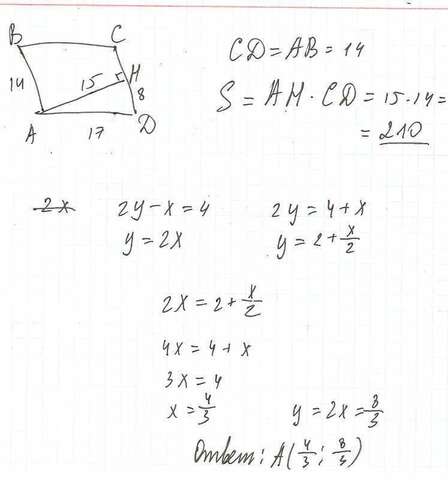 B C
14 15 H 8
A 17 D
CD = AB = 14
S = AH · CD = 15 · 14 =
= 210
2x
2y - x = 4 2y = 4 + x
y = 2x y = 2 + x/2
2x = 2 + x/2
4x = 4 + x
3x = 4
x = 4/3 y = 2x = 8/3
Ответ: A(4/3; 8/3)